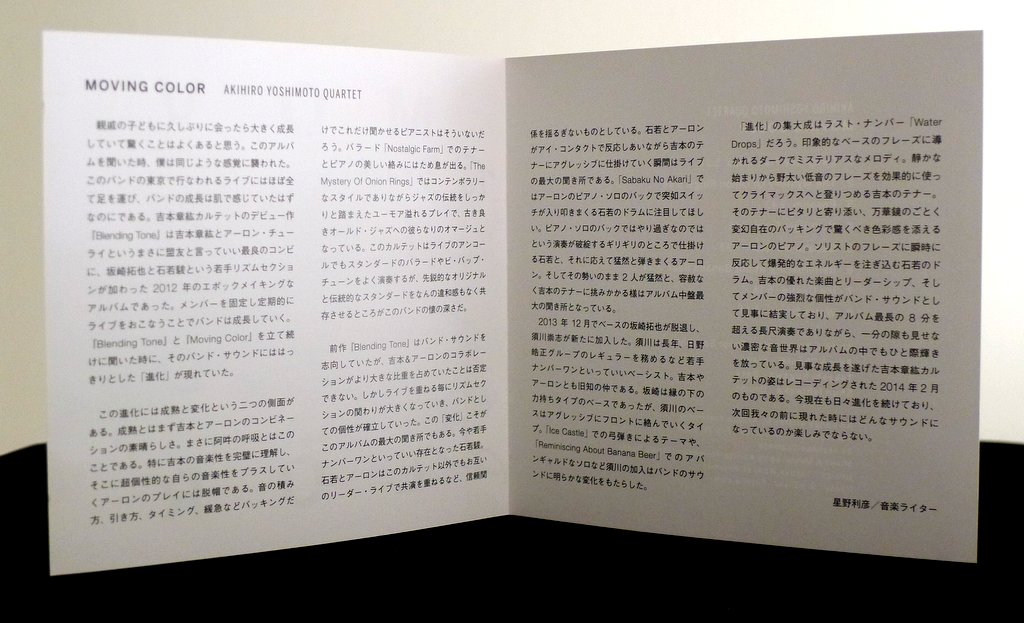 MOVING COLOR AKIHIRO YOSHIMOTO QUARTET
親戚の子どもに久しぶりに会ったら大きく成長
していて驚くことはよくあると思う。このアルバ
ムを聞いた時、僕は同じような感覚に襲われた。
このバンドの東京で行なわれるライブにはほぼ全
て足を運び、バンドの成長は肌で感じていたはず
なのにである。吉本章紘カルテットのデビュー作
『Blending Tone』は吉本章紘とアーロン・チュー
ライというまさに盟友と言っていい最良のコンビ
に、坂崎拓也と石若駿という若手リズムセクショ
ンが加わった 2012 年のエポックメイキングな
アルバムであった。メンバーを固定し定期的に
ライブをおこなうことでバンドは成長していく。
『Blending Tone』と『Moving Color』を立て続
けに聞いた時に、そのバンド・サウンドにははっ
きりとした「進化」が現れていた。
この進化には成熟と変化という二つの側面が
ある。成熟とはまず吉本とアーロンのコンビネー
ションの素晴らしさ。まさに阿吽の呼吸とはこの
ことである。特に吉本の音楽性を完璧に理解し、
そこに超個性的な自らの音楽性をプラスしてい
くアーロンのプレイには脱帽である。音の積み
方、引き方、タイミング、緩急などバッキングだ
けでこれだけ聞かせるピアニストはそういないだ
ろう。バラード「Nostalgic Farm」でのテナー
とピアノの美しい絡みにはため息が出る。「The
Mystery Of Onion Rings」ではコンテンポラリー
なスタイルでありながらジャズの伝統をしっか
りと踏まえたユーモア溢れるプレイで、古き良
きオールド・ジャズへの彼らなりのオマージュと
なっている。このカルテットはライブのアンコー
ルでもスタンダードのバラードやビ・バップ・
チューンをよく演奏するが、先鋭的なオリジナル
と伝統的なスタンダードをなんの違和感もなく共
存させるところがこのバンドの懐の深さだ。
前作『Blending Tone』はバンド・サウンドを
志向していたが、吉本&アーロンのコラボレー
ションがより大きな比重を占めていたことは否定
できない。しかしライブを重ねる毎にリズムセク
ションの関わりが大きくなっていき、バンドとし
ての個性が確立していった。この「変化」こそが
このアルバムの最大の聞き所でもある。今や若手
ナンバーワンといっていい存在となった石若駿。
石若とアーロンはこのカルテット以外でもお互い
のリーダー・ライブで共演を重ねるなど、信頼関
係を揺るぎないものとしている。石若とアーロン
がアイ・コンタクトで反応しあいながら吉本のテ
ナーにアグレッシブに仕掛けていく瞬間はライブ
の最大の聞き所である。「Sabaku No Akari」で
はアーロンのピアノ・ソロのバックで突如スイッ
チが入り叩きまくる石若のドラムに注目してほし
い。ピアノ・ソロのバックではやり過ぎなのでは
という演奏が破綻するギリギリのところで仕掛け
る石若と、それに応えて猛然と弾きまくるアーロ
ン。そしてその勢いのまま 2 人が猛然と、容赦な
く吉本のテナーに挑みかかる様はアルバム中盤最
大の聞き所となっている。
2013 年 12 月でベースの坂崎拓也が脱退し、
須川崇志が新たに加入した。須川は長年、日野
皓正グループのレギュラーを務めるなど若手
ナンバーワンといっていいベーシスト。吉本や
アーロンとも旧知の仲である。坂崎は縁の下の
力持ちタイプのベースであったが、須川のベー
スはアグレッシブにフロントに絡んでいくタイ
プ。「Ice Castle」での弓弾きによるテーマや、
「Reminiscing About Banana Beer」でのアバ
ンギャルドなソロなど須川の加入はバンドのサウ
ンドに明らかな変化をもたらした。
「進化」の集大成はラスト・ナンバー「Water
Drops」だろう。印象的なベースのフレーズに導
かれるダークでミステリアスなメロディ。静かな
始まりから野太い低音のフレーズを効果的に使っ
てクライマックスへと登りつめる吉本のテナー。
そのテナーにピタリと寄り添い、万華鏡のごとく
変幻自在のバッキングで驚くべき色彩感を添える
アーロンのピアノ。ソリストのフレーズに瞬時に
反応して爆発的なエネルギーを注ぎ込む石若のド
ラム。吉本の優れた楽曲とリーダーシップ、そし
てメンバーの強烈な個性がバンド・サウンドとし
て見事に結実しており、アルバム最長の 8 分を
超える長尺演奏でありながら、一分の隙も見せな
い濃密な音世界はアルバムの中でもひと際輝き
を放っている。見事な成長を遂げた吉本章紘カル
テットの姿はレコーディングされた 2014 年 2 月
のものである。今現在も日々進化を続けており、
次回我々の前に現れた時にはどんなサウンドに
なっているのか楽しみでならない。
星野利彦／音楽ライター